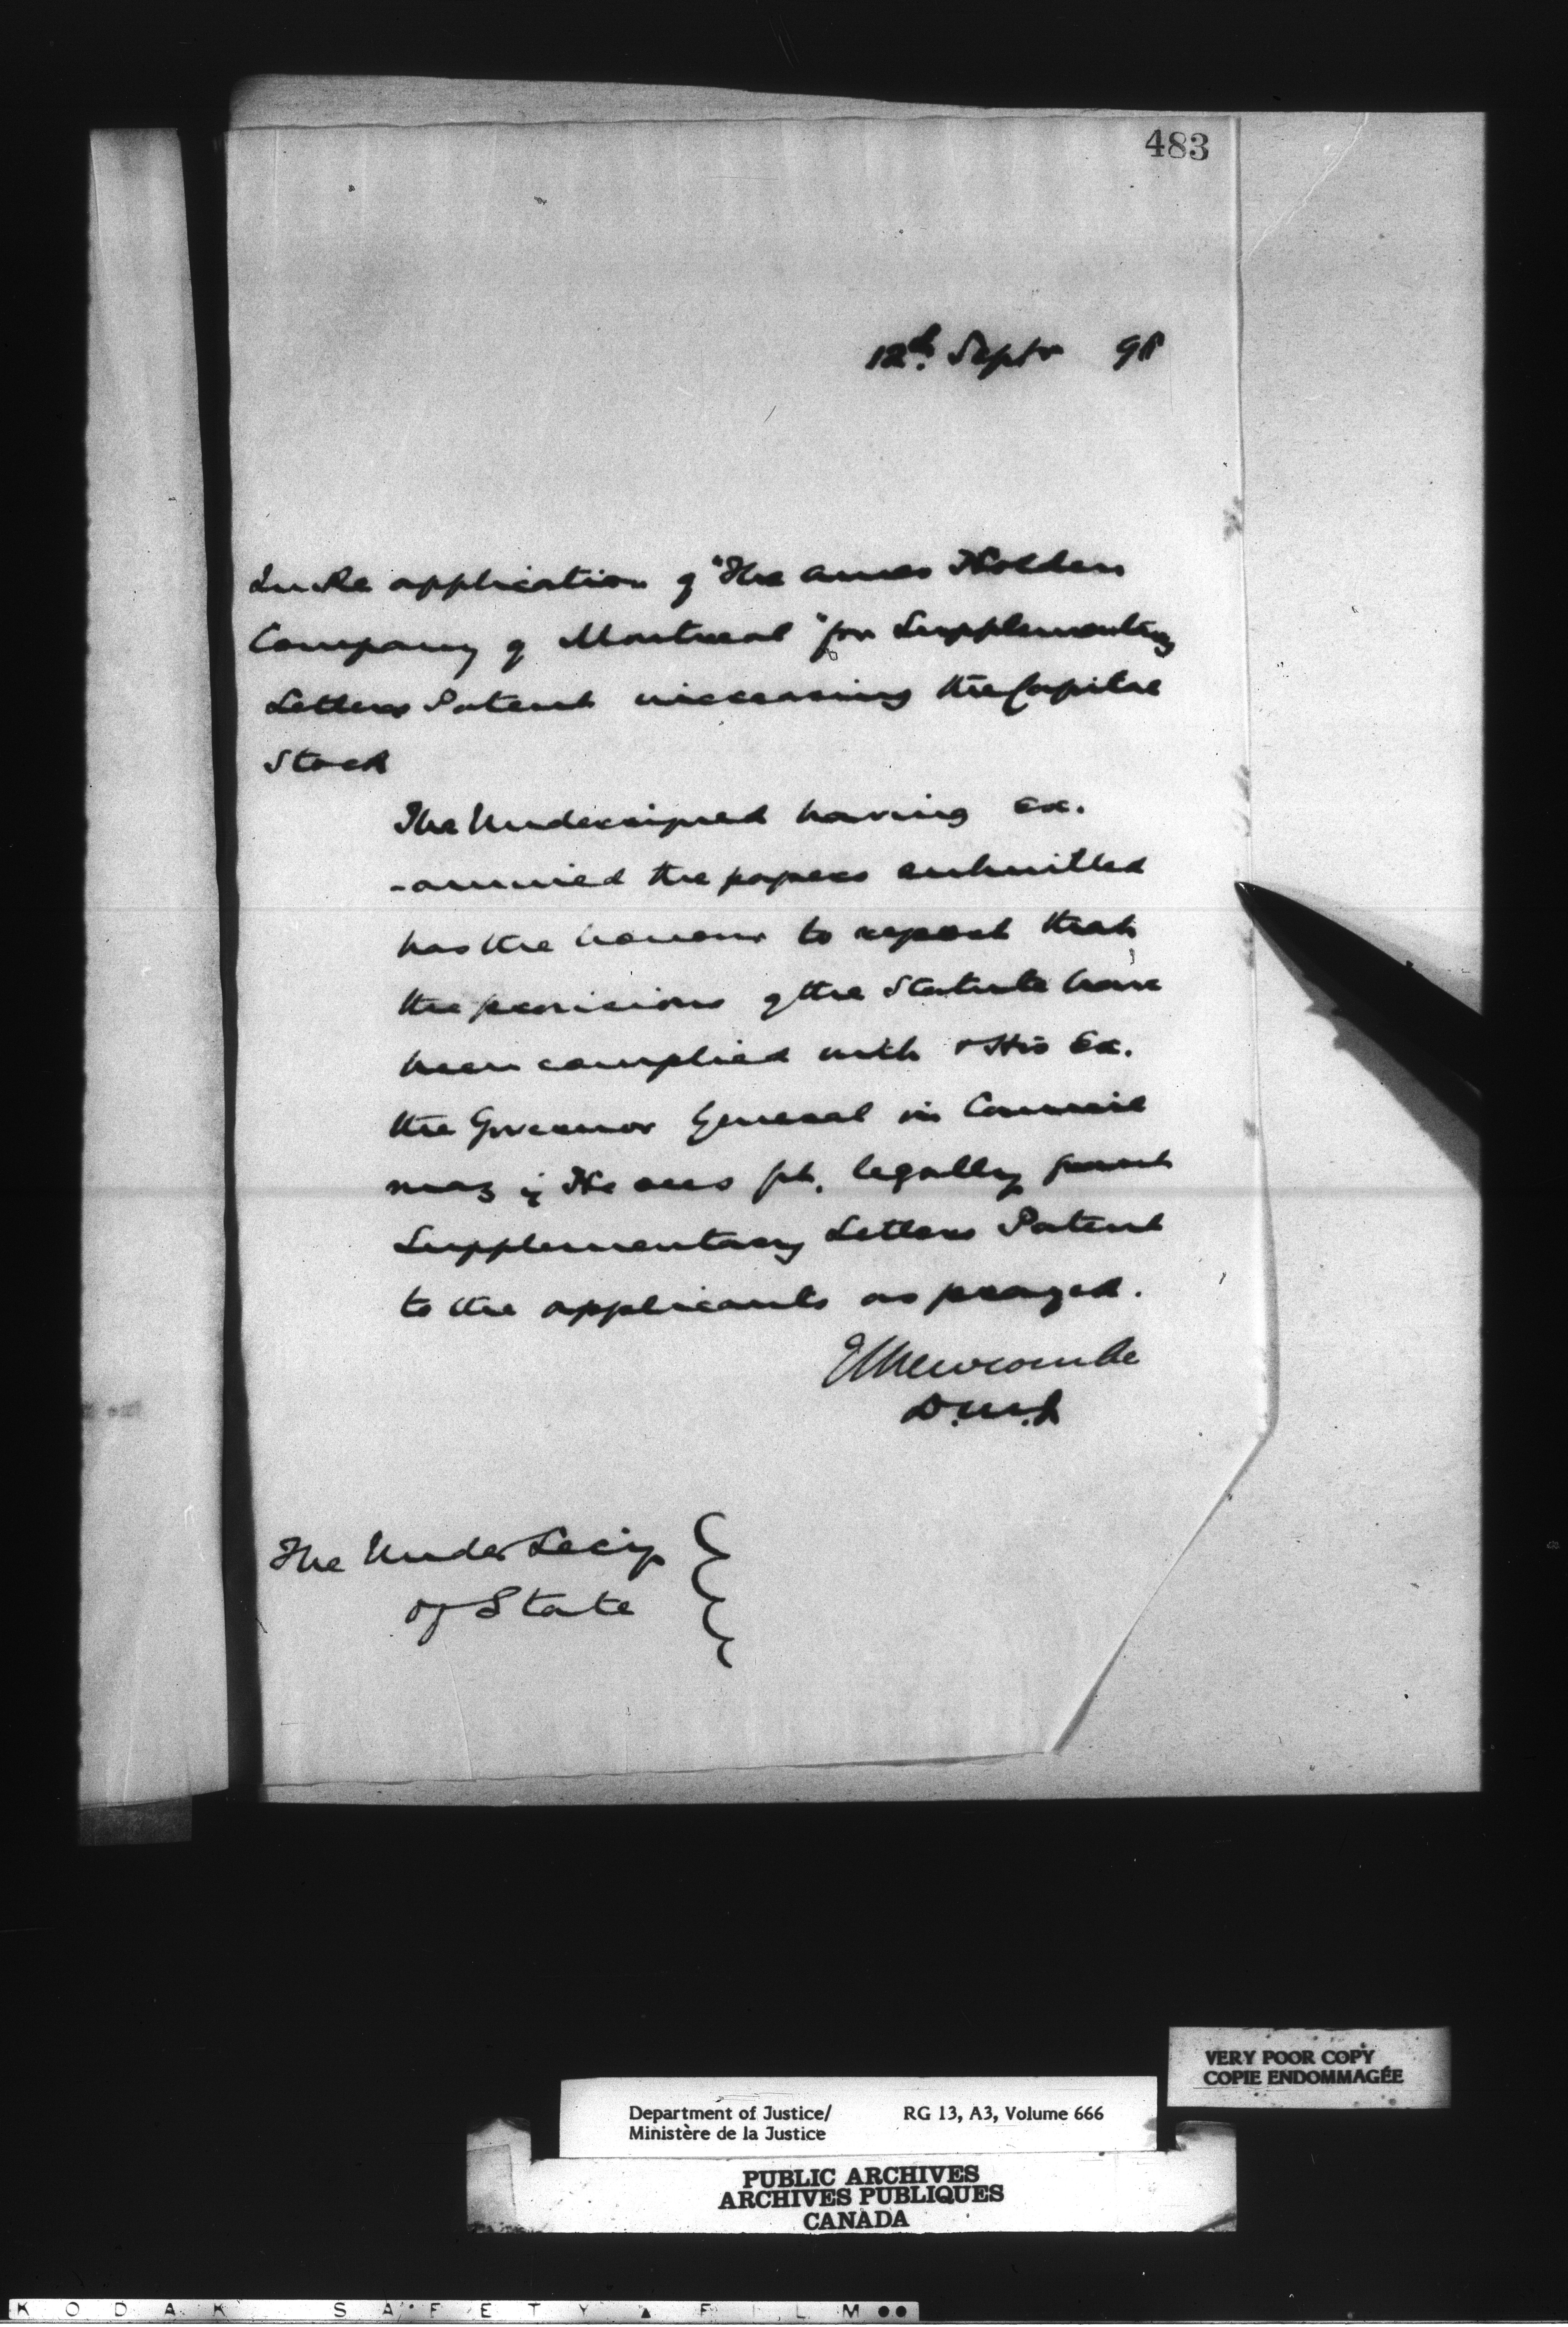 483
12th. Septr 98
In Re application of "The Ames Holden
Company of Montreal" for Supplementary
Letters Patent increasing the Capital
Stock
The Undersigned having ex-
-amined the papers submitted
has the honour to report that
the provisions of the Statute have
been complied with & His Ex.
the Governor General in Council
may if He sees fit, legally grant
Supplementary Letters Patent
to the applicants as prayed.
E L Newcombe
D.M.J.
The Under Secy
of State
VERY POOR COPY
COPIE ENDOMMAGÉE
Department of Justice/ RG 13, A3, Volume 666
Ministère de la Justice
PUBLIC ARCHIVES
ARCHIVES PUBLIQUES
CANADA
KODAK SAFETY ▲ FILM ●●